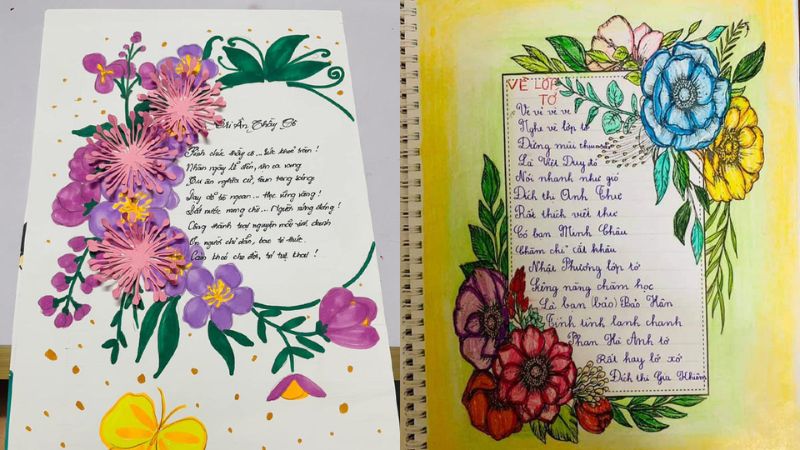 Tri Ân Thầy Cô
Kính chúc thầy cô ... sức khoẻ tràn !
Nhân ngày lễ đến, xin ca vang
Ơn ân nghĩa cử, trọng sáng
Say đổ ... học vững vàng !
Đất nước mong chờ ... Người xứng đáng !
Công thành toại nguyện mãi vinh danh
Ơn người chỉ dẫn, trao tri thức.
Cảm khoá cho đời, tử tuệ khai !
VỀ LỚP
TỚ
Vè vẻ vè ve
Nghe vè lớp tớ
Đứng mũi
Là Việt Duy đó
Nói nhanh như gió
Đích thị Anh Thư
Rất thích viết thư
Có bạn Minh Châu
Chăm chỉ cắt khâu
Nhật Phương lớp tớ
Siêng năng chăm học
Là bạn (bảo) Bảo Hân
Tính tình lanh chanh
Phan Hà Anh tớ
Rất hay lớ xớ
Đích thị Gia Khiêm